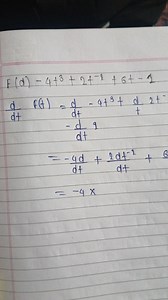 F(d) - 4t³ + 2t⁻² + 6t - 1
d/dt f(t) = d/dt - 4t³ + d/t 2t⁻
- d/dt 1
= -4d/dt + 2dt⁻²/dt + 6
= -4 x